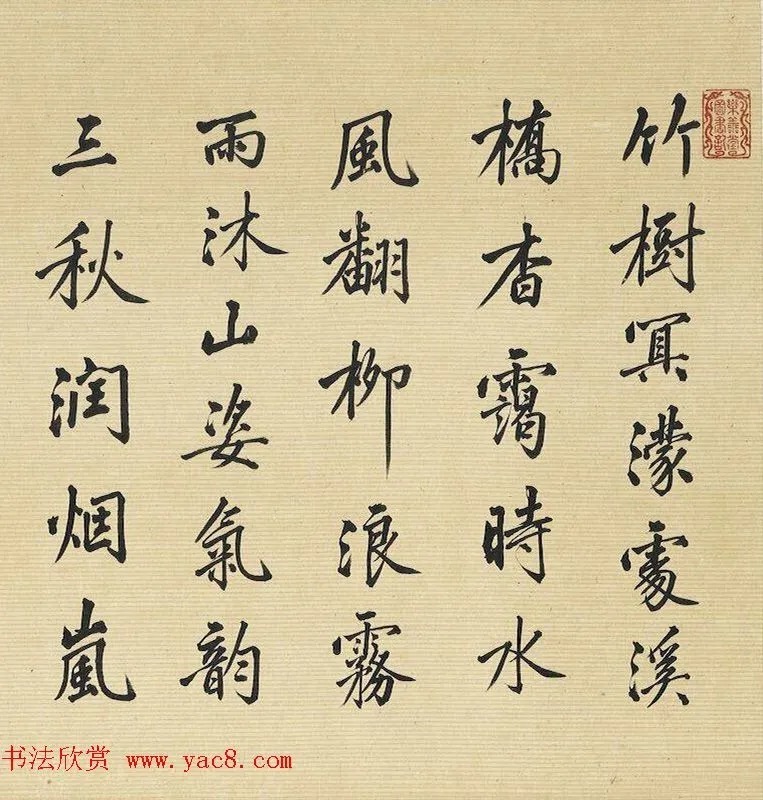 竹樹冥濛處溪
橋杳靄時水
風翻柳浪霧
雨沐山姿氣韻
三秋润烟嵐
书法欣赏 www.yac8.com